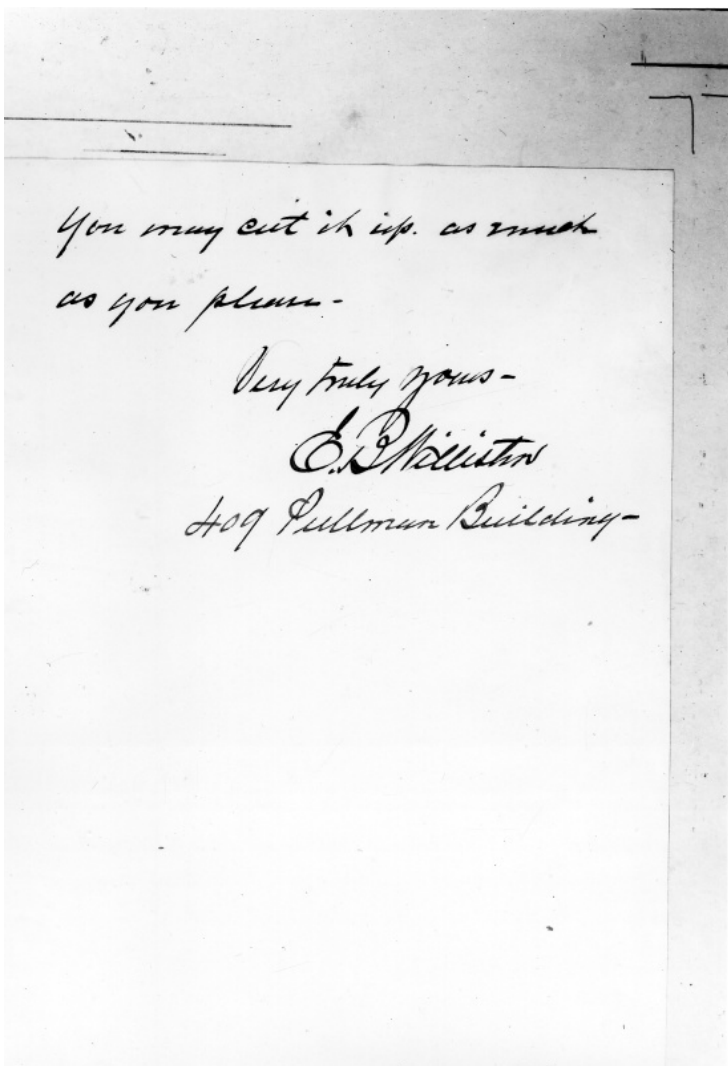 You may cut it up. as much
as you please -
Very truly yours -
E. B. Williston
409 Pullman Building -